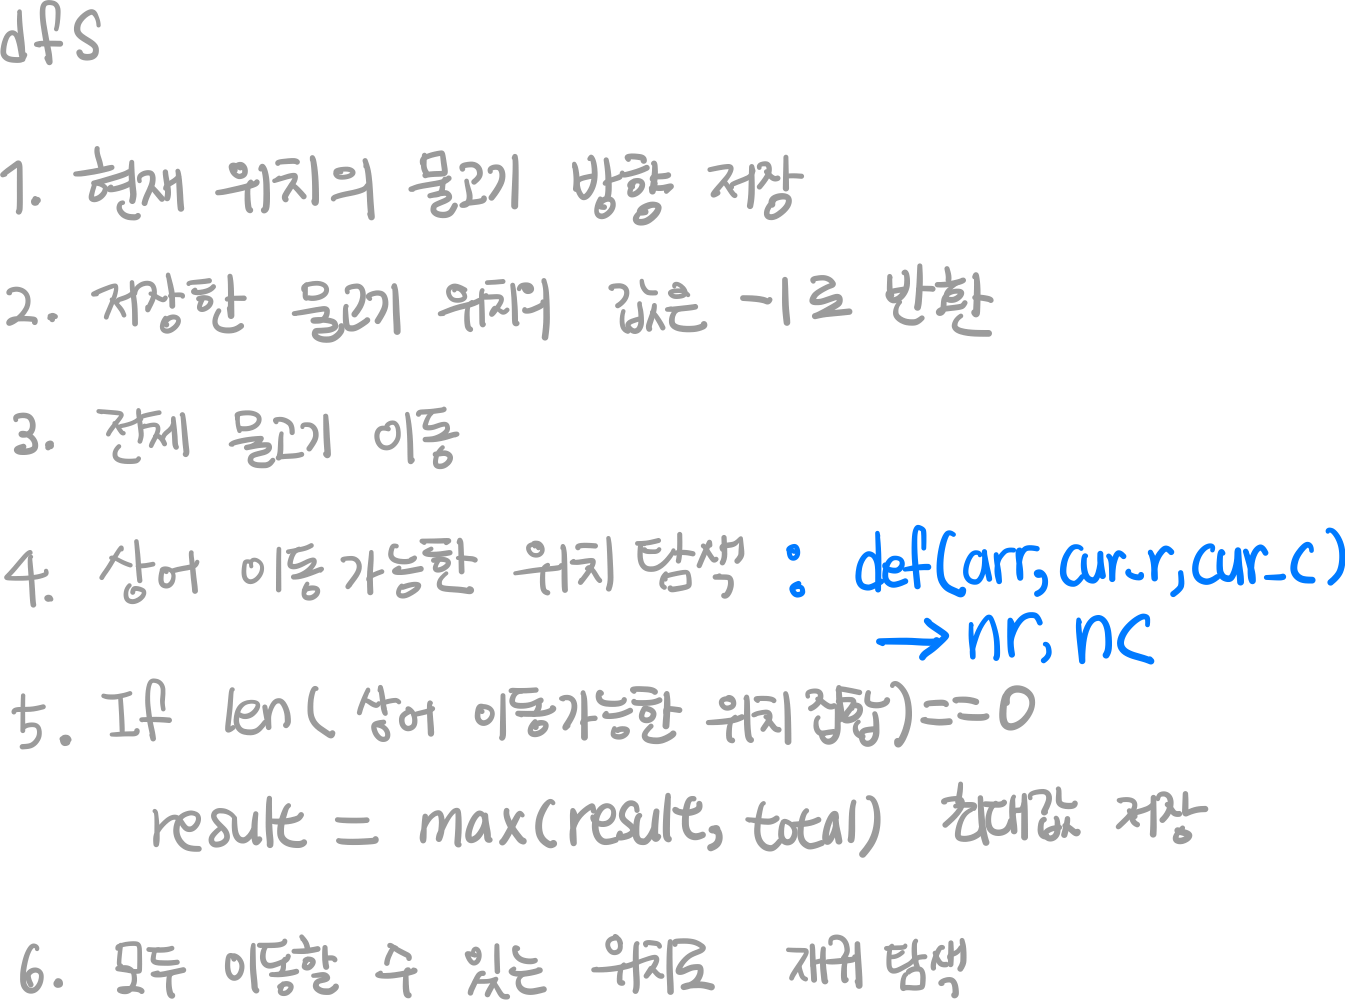 dfs
1. 현재 위치의 물고기 방향 저장
2. 저장한 물고기 위치의 값은 -1로 반환
3. 전체 물고기 이동
4. 상어 이동가능한 위치 탐색 : def(arr, cur_r, cur_c)
→ nr, nc
5. If len(상어 이동가능한 위치 집합)==0
result = max(result, total) 최대값 저장
6. 모두 이동할 수 있는 위치로 재귀 탐색